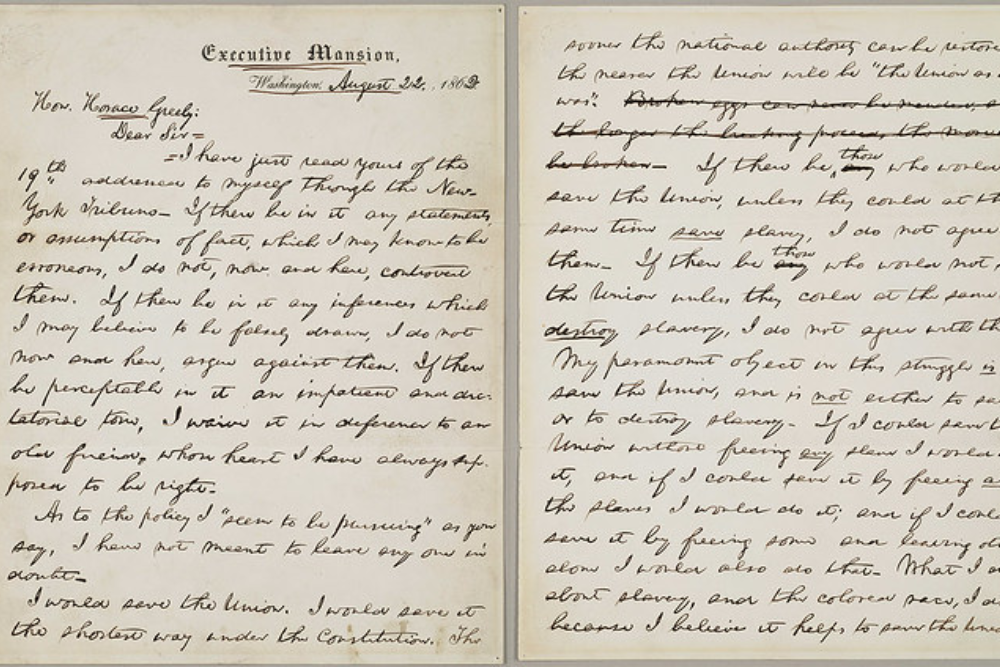 Executive Mansion,
Washington, August 22, 1862.
Hon. Horace Greely:
Dear Sir=
=I have just read yours of the
19th addressed to myself through the New-
York Tribune— If there be in it any statements,
or assumptions of fact, which I may know to be
erroneous, I do not, now and here, controvert
them. If there be in it any inferences which
I may believe to be falsely drawn, I do not
now and here, argue against them. If there
be perceptable in it an impatient and dic-
tatorial tone, I waive it in deference to an
old friend, whose heart I have always sup-
posed to be right-
As to the policy I "seem to be pursuing" as you
say, I have not meant to leave any one in
doubt—
I would save the Union. I would save it
the shortest way under the Constitution. The
sooner the national authority can be restore
the nearer the Union will be "the Union as
was". Broken eggs can never be mended, a
the longer the breaking proceeds, the more
be broken— If there be those any who would
save the Union, unless they could at th
same time save slavery, I do not agree
them— If there be those any who would not
the Union unless they could at the same
destroy slavery, I do not agree with th
My paramount object in this struggle is
save the Union, and is not either to sa
or to destroy slavery- If I could save t
Union without freeing any slave I would
it, and if I could save it by freeing a
the slaves I would do it; and if I coul
save it by freeing some and leaving ot
alone I would also do that— What I d
about slavery, and the colored race, I d
because I believe it helps to save the Unio